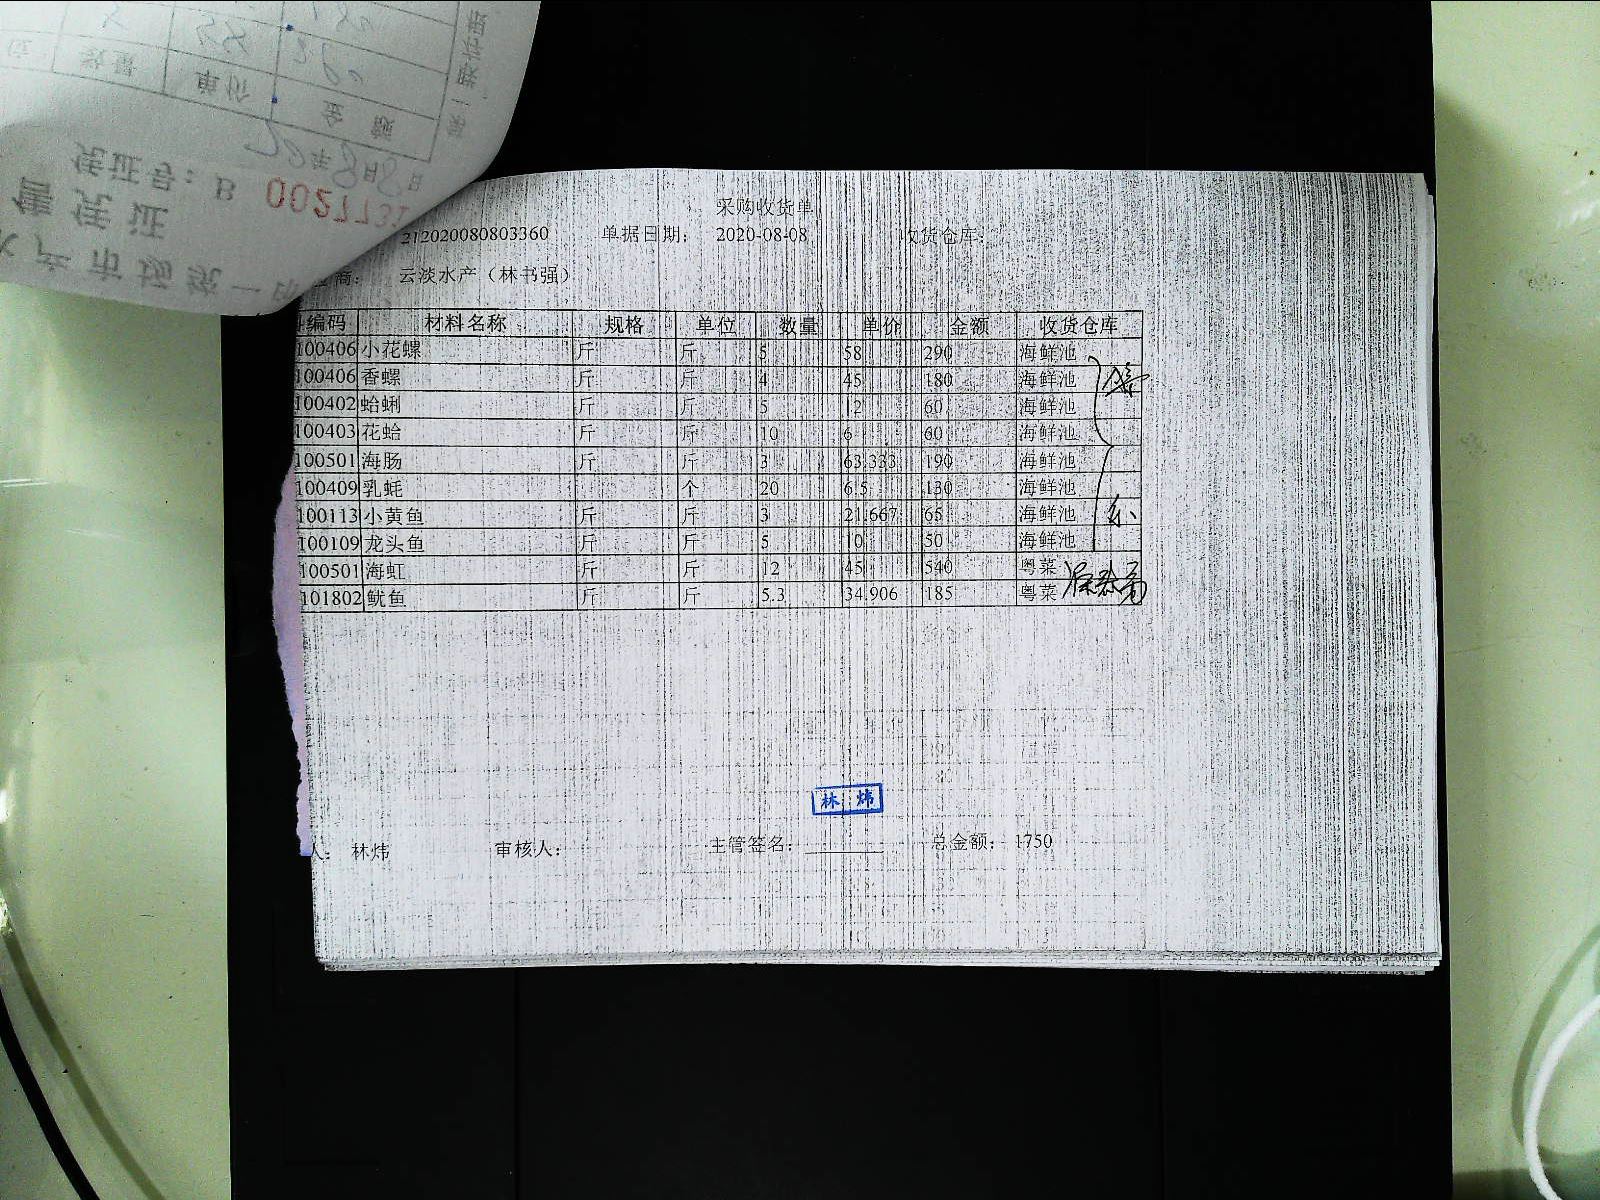 采购收货单
212020080803360 单据日期: 2020-08-08 收货仓库:
商: 云淡水产(林书强)
编码 材料名称 规格 单位 数量 单价 金额 收货仓库
100406 小花螺 斤 斤 5 58 290 海鲜池
100406 香螺 斤 斤 4 45 180 海鲜池
100402 蛤蜊 斤 斤 5 12 60 海鲜池
100403 花蛤 斤 斤 10 6 60 海鲜池
100501 海肠 斤 斤 3 63.333 190 海鲜池
100409 乳蚝 个 20 6.5 130 海鲜池
100113 小黄鱼 斤 斤 3 21.667 65 海鲜池
100109 龙头鱼 斤 斤 5 10 50 海鲜池
100501 海虹 斤 斤 12 45 540 粤菜
101802 鱿鱼 斤 斤 5.3 34.906 185 粤菜
林炜
人: 林炜 审核人: 主管签名: 总金额: 1750
售凭证
凭证号: B 0027731
数量 单价 金额